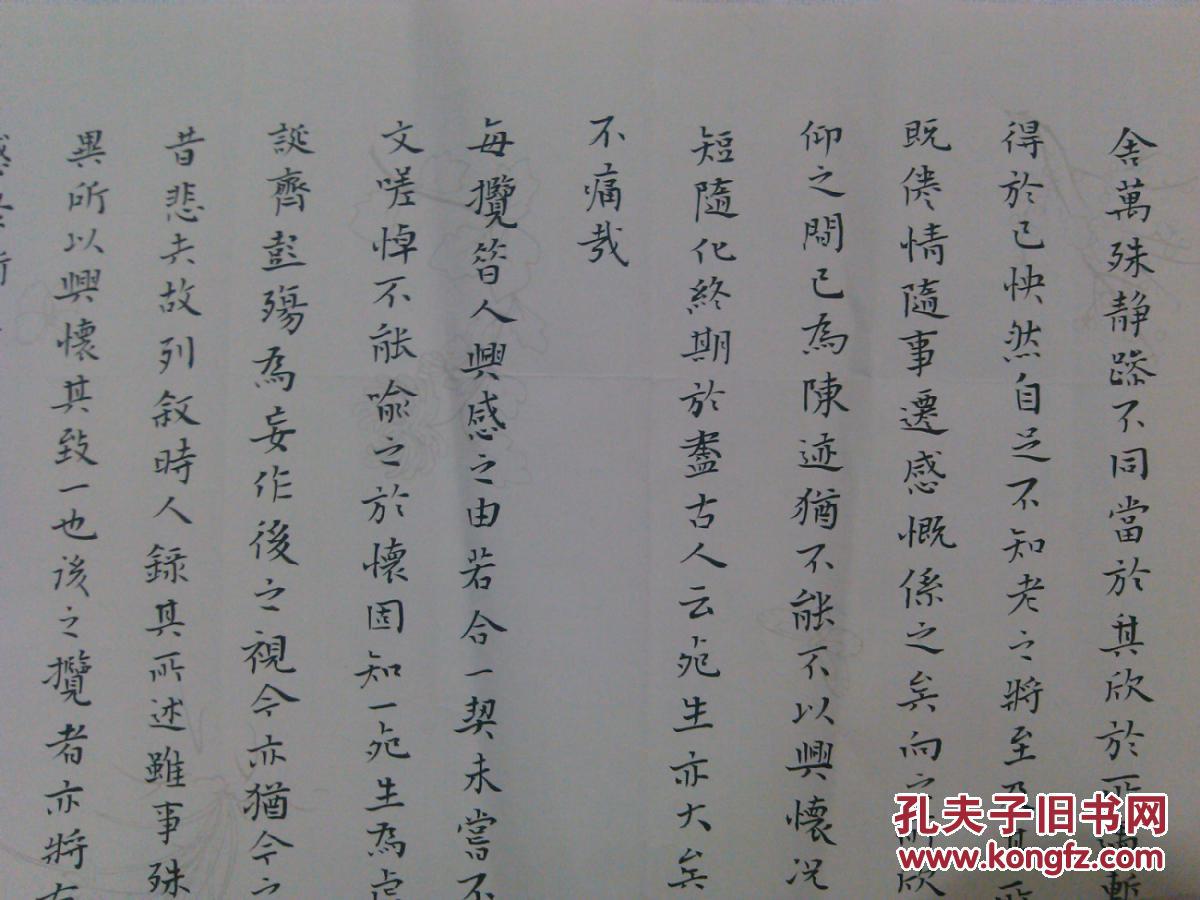 舍萬殊静躁不同當於其欣於所遇暫
得於己怏然自足不知老之將至及其所
既倦情隨事遷感慨係之矣向之所欣
仰之間已為陳迹猶不能不以興懷況
短隨化終期於盡古人云死生亦大矣
不痛哉
每攬昔人興感之由若合一契未嘗不
文嗟悼不能喻之於懷固知一死生為虛
誕齊彭殤為妄作後之視今亦猶今之
昔悲夫故列叙時人錄其所述雖事殊
異所以興懷其致一也後之攬者亦將有
孔夫子旧书网
www.kongfz.com